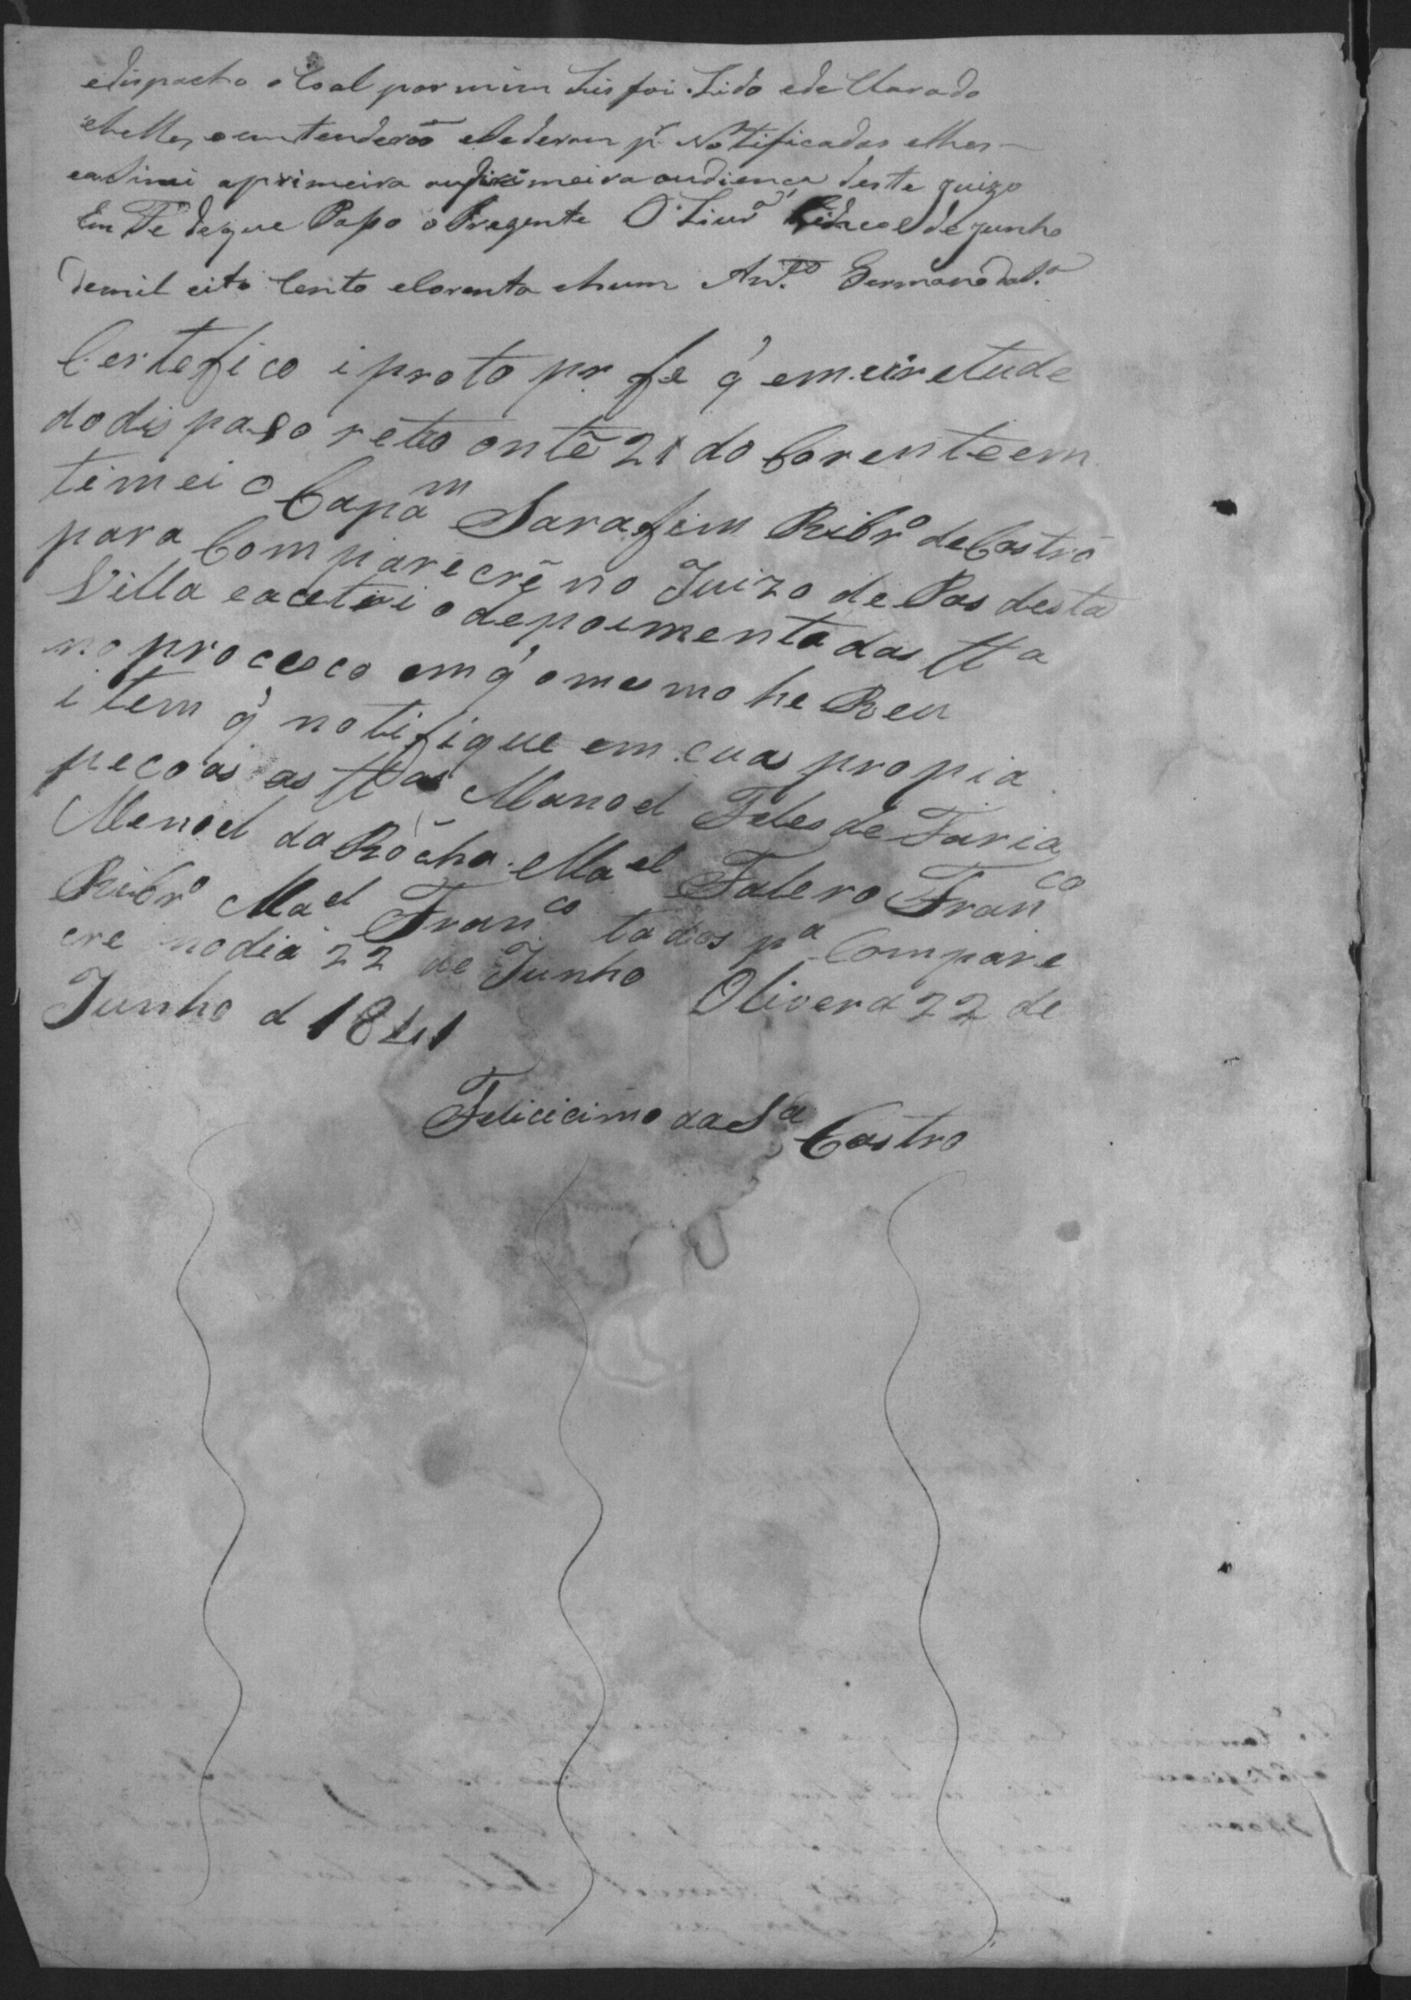 edispacho o Coal por mim Lhis foi Lido ede Clarado
ehelles o emtenderaõ elederam pr Notificados elhes
eaSinei aprimeira audiença deste juizo
Em Fe de que Paso o Prezente O Livrª de junho
demil eito Cento ecorenta ehum Antº Germano da Sª
Certefico i proto pr fe q' em viretude
do dis paso retro ontẽ 21 do Corente em
timei o Capam Sarafim Ribrº de Castro
para Comparecrẽ no Juizo de Pas desta
Villa eacetei o depoimento das ttª
no proceco em q' o mesmo he Reu
i tem q' notifique em cuas propia
pecoas as ttas Manoel Teles de Faria
Menoel da Rocha Mael Falero Franco
Ribrº Mael Franco todos pª Compare
cre no dia 22 de Junho Olivera 22 de
Junho d 1841
Felicicimo da Sª Castro